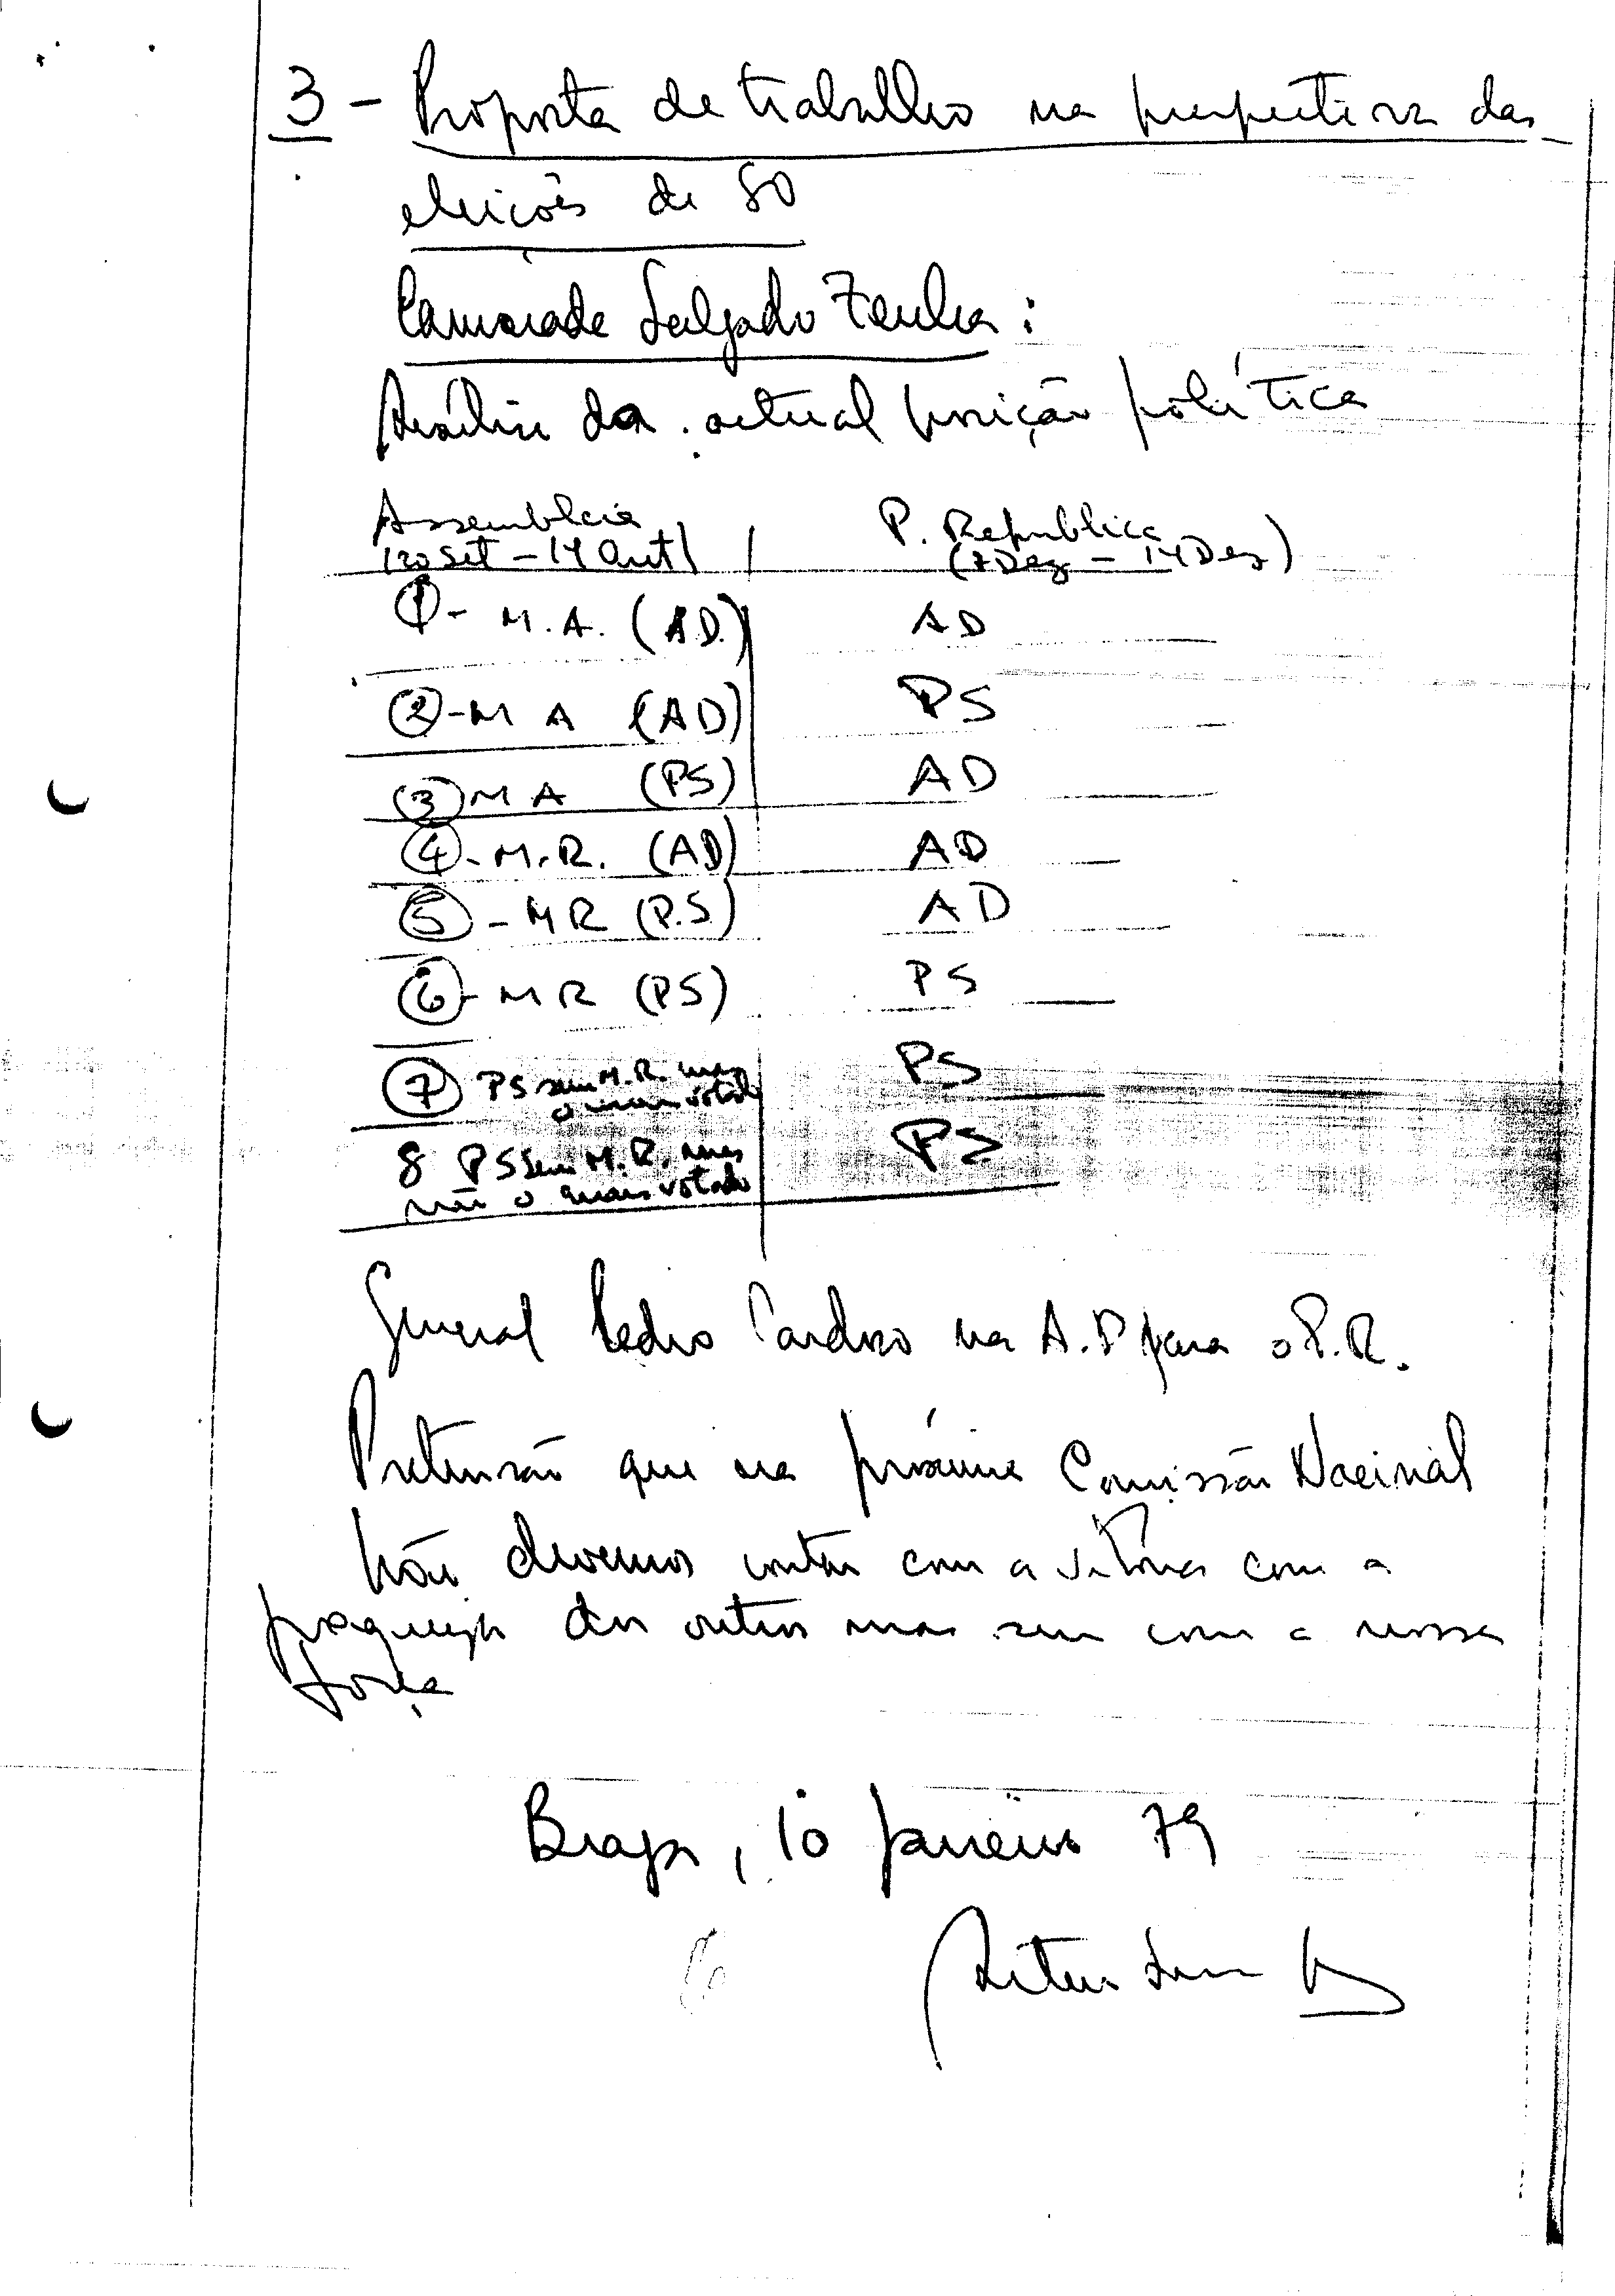 3 - Proposta de trabalho na perspectiva das
eleições de 80
Camarada Salgado Zenha :
Análise da actual posição política
Assembleia / P. Republica
(20 Set - 14 Out) (7 Dez - 14 Dez)
① - M. A. (A.D.) AD
② - M A (AD) PS
③ M A (PS) AD
④ - M. R. (AD) AD
⑤ - M R (P.S) AD
⑥ - M R (PS) PS
⑦ PS sem M. R. mas PS
o mais votado
8 PS sem M. R. mas PS
não o mais votado
General Pedro Cardoso na A.D para o P.R.
Pretensão que na próxima Comissão Nacional
Não devemos contar com a vitória com a
fraqueza dos outros mas sim com a nossa
força
Braga, 10 Janeiro 79
Artur